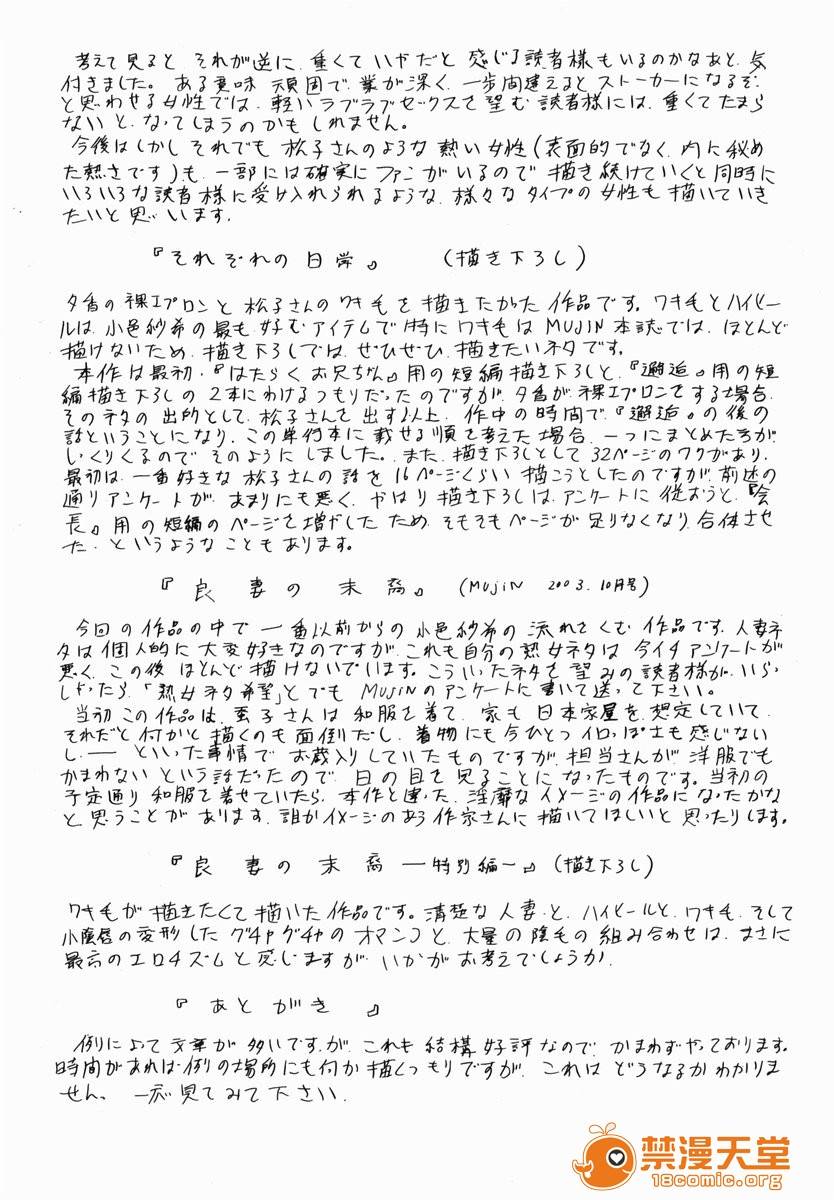 考えて見ると それが逆に、重くていやだと 感じる読者様もいるのかなあと、気
付きました。ある意味 頑固で、業が深く、一歩間違えるとストーカーになるぞ
と思わせる女性では、軽いラブラブセックスを望む読者様には、重くてたまら
ないと、なってしまうのかもしれません。
今後はしかし それでも 松子さんのような 熱い女性(表面的でなく、内に秘め
た熱さです)も、一部には確実に ファンがいるので 描き続けていくと同時に
いろいろな読者様に受け入れられるような、様々なタイプの女性も 描いていき
たいと思います。
『それぞれの日常』 (描き下ろし)
夕香の裸エプロンと 松子さんのワキ毛を描きたかった作品です。ワキ毛とハイヒー
ルは、小邑紗希の最も好むアイテムで、特にワキ毛は MUJIN 本誌では、ほとんど
描けないため、描き下ろしでは、ぜひぜひ、描きたいネタです。
本作は最初、『はたらくお兄ちゃん』用の短編描き下ろしと、『邂逅』用の短
編描き下ろしの 2本にわけるつもりだったのですが、夕香が裸エプロンをする場合、
そのネタの出所として、松子さんを出す以上、作中の時間で、『邂逅』の後の
話ということになり、この単行本に載せる順を考えた場合、一つにまとめた方が、
しっくりくるので そのようにしました。また、描き下ろしとして 32ページのワクがあり、
最初は、一番好きな 松子さんの話を 16ページくらい 描こうとしたのですが、前述の
通りアンケートが、あまりにも悪く、やはり 描き下ろしは、アンケートに 従おうと、『会
長』用の短編のページを増やしたため、そもそもページが足りなくなり、合体させ
た、というようなこともあります。
『良妻の末裔』 (MUJIN 2003. 10月号)
今回の作品の中で 一番以前からの小邑紗希の流れをくむ作品です。人妻ネ
タは個人的に大変好きなのですが、これも自分の熟女ネタは、今イチアンケートが
悪く、この後 ほとんど描けないでいます。こういったネタを望みの読者様が、いらっ
しゃったら、「熟女ネタ希望」とでも MUJINのアンケートに書いて送って下さい。
当初 この作品は、 子さんは 和服を着て、家も 日本家屋を想定していて、
それだと何かと描くのも面倒だし、着物にも今ひとつ イロっぽさも感じない
し、── といった事情で お蔵入りしていたものですが、担当さんが 洋服でも
かまわない という話だったので、日の目を見ることになったものです。当初の
予定通り 和服を着せていたら、本作と違った、淫靡なイメージの作品になったかな
と思うことがあります。誰かイメージのあう作家さんに描いてほしいと思ったりします。
『良妻の末裔 ー特別編ー』(描き下ろし)
ワキ毛が描きたくて描いた作品です。清楚な人妻と、ハイヒールと、ワキ毛、そして
小陰唇の変形したグチャグチャのオマンコと、大量の陰毛の組み合わせは、まさに
最高のエロチズムと感じますが、いかがお考えでしょうか。
『あとがき』
例によって文章が多いですが、これも結構好評なので、かまわずやっております。
時間があれば例の場所にも何か描くつもりですが、これは どうなるかわかりま
せん。一応見てみて下さい。
禁漫天堂
18comic.org